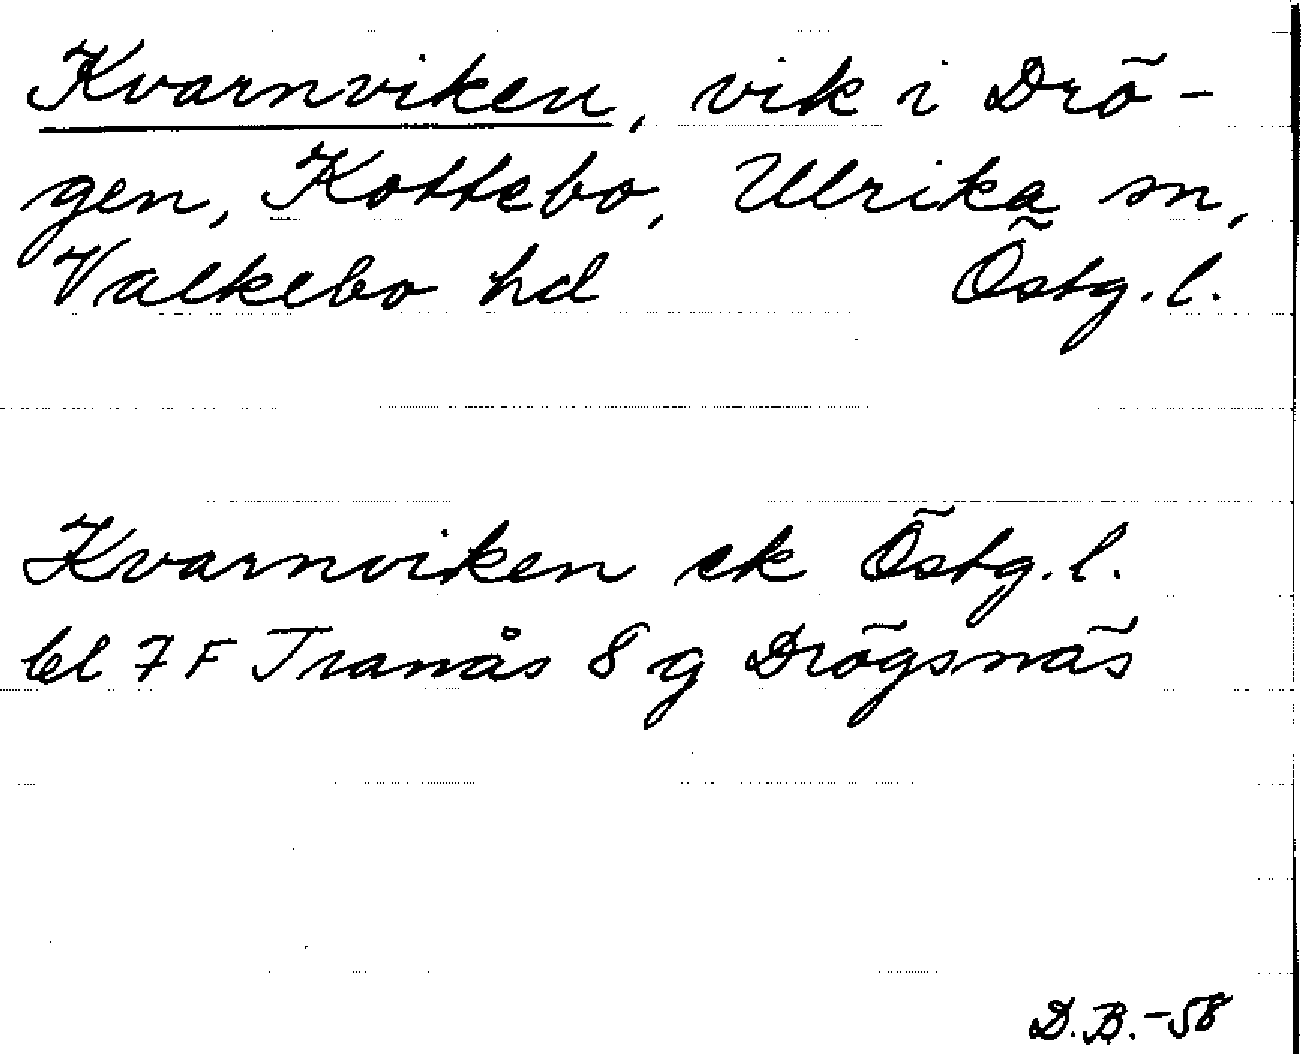 Kvarnviken, vik i Drö-
gen, Kottebo, Ulrika sn,
Valkebo hd Östg. l.
Kvarnviken ek Östg. l.
bl 7 F Tranås 8 g Drögsnäs
D.B.-58